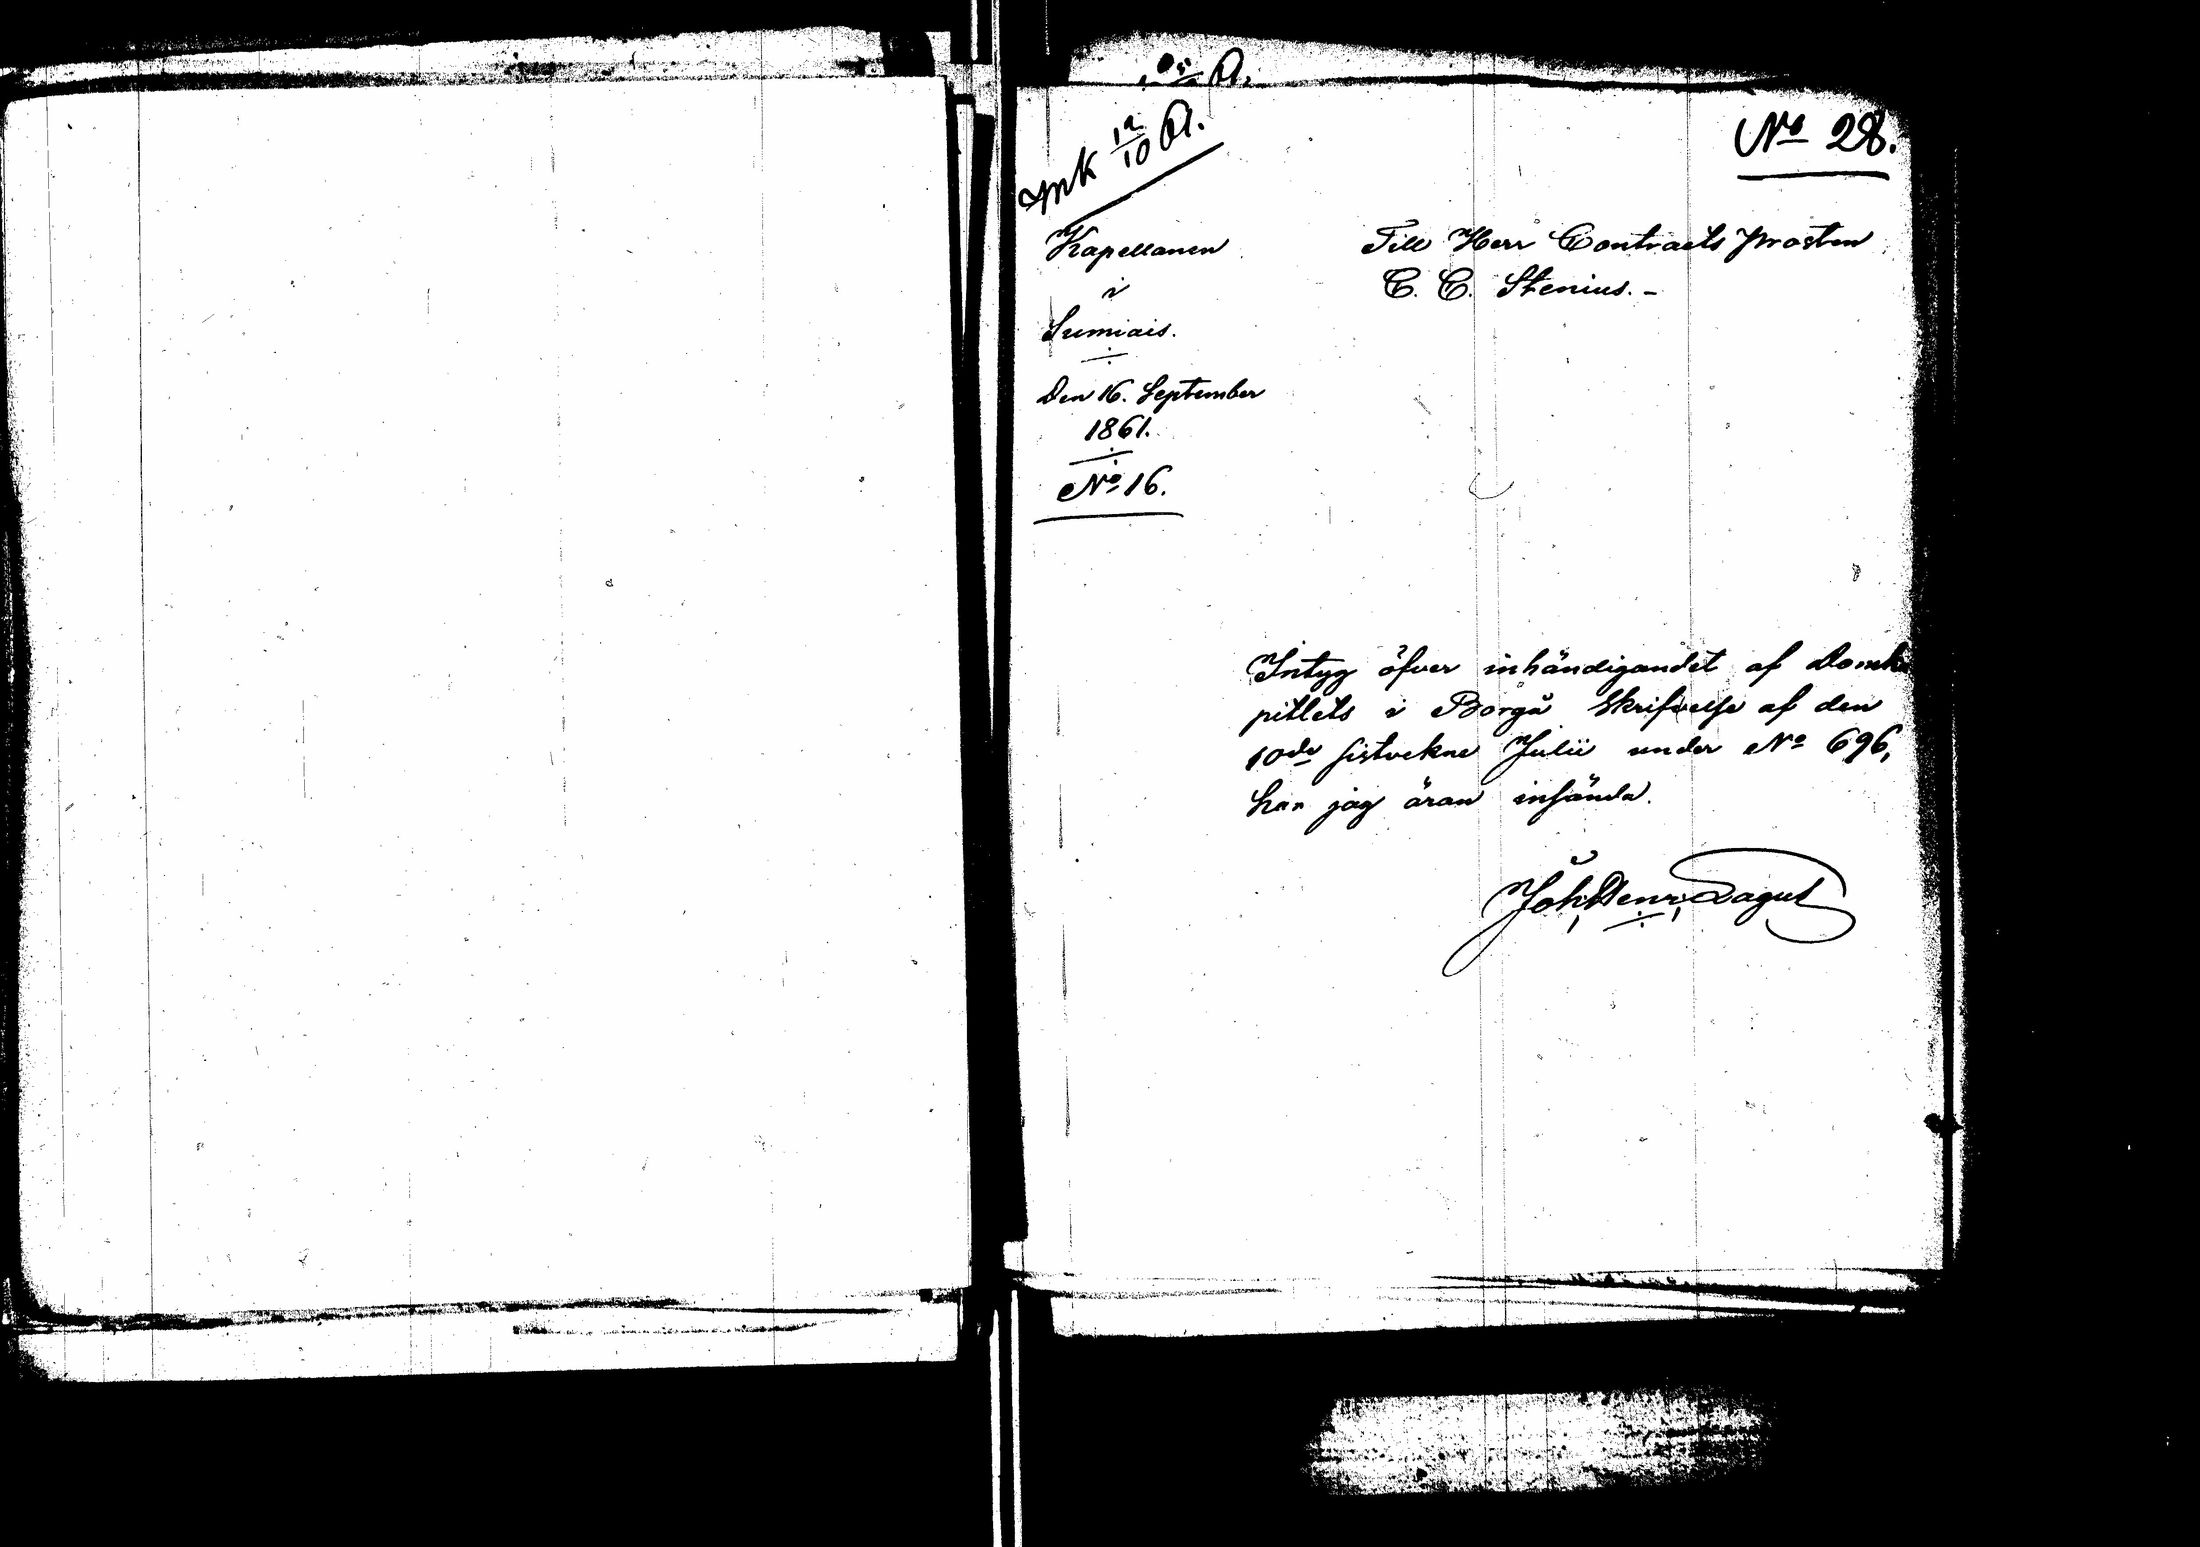 No 28.
Ink 12/10 61.
Kapellanen
i
Sumiais.
Den 16. September
1861.
No 16.
Till Herr Contracts Prosten
C. C. Stenius. -
Intyg öfver inhändigandet af Domka
pitlets i Borgå Skrifvelse af den
10de sistvekne Julii under No 696,
har jag äran insända.
Joh. Henr.